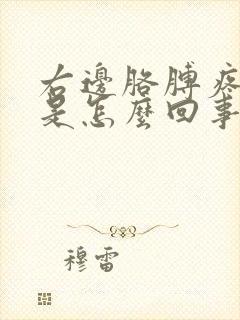 右邊胳膊疼
是怎麼回事
穆雷